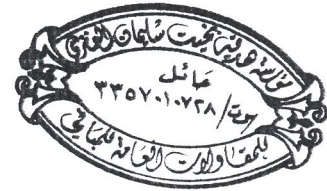 مؤسسة هدية بخيت سليمان العنزي
حائل
س.ت/ ٣٣٥٧٠١٠٧٢٨
للمقاولات العامة للمباني